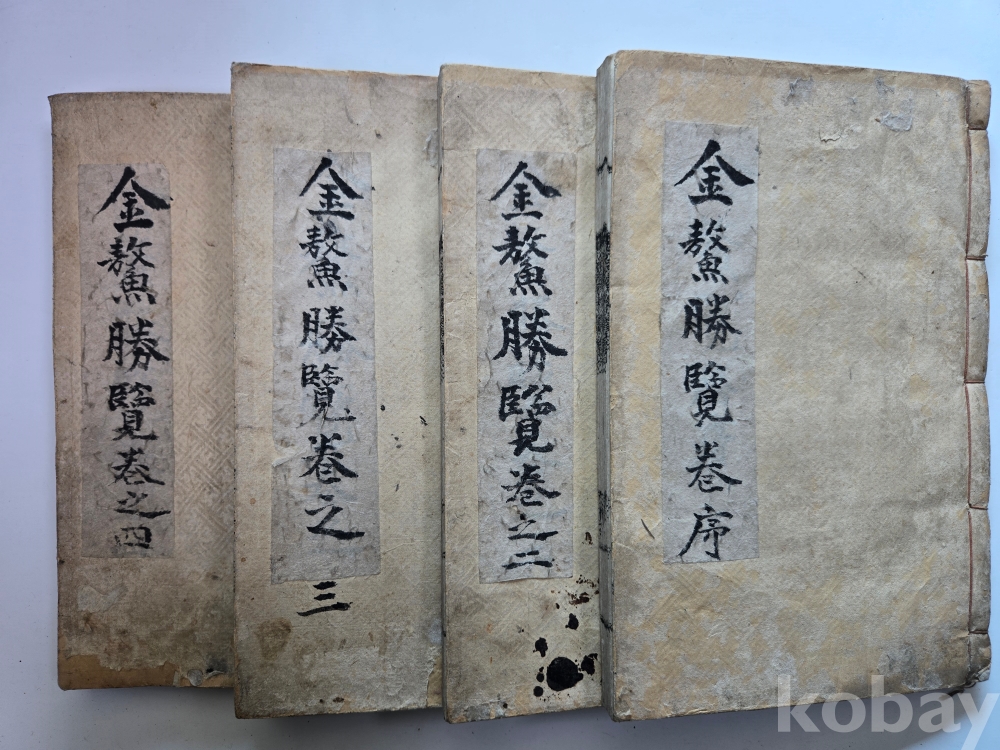 金鰲勝覽卷序
金鰲勝覽卷之二
金鰲勝覽卷之三
金鰲勝覽卷之四
kobay